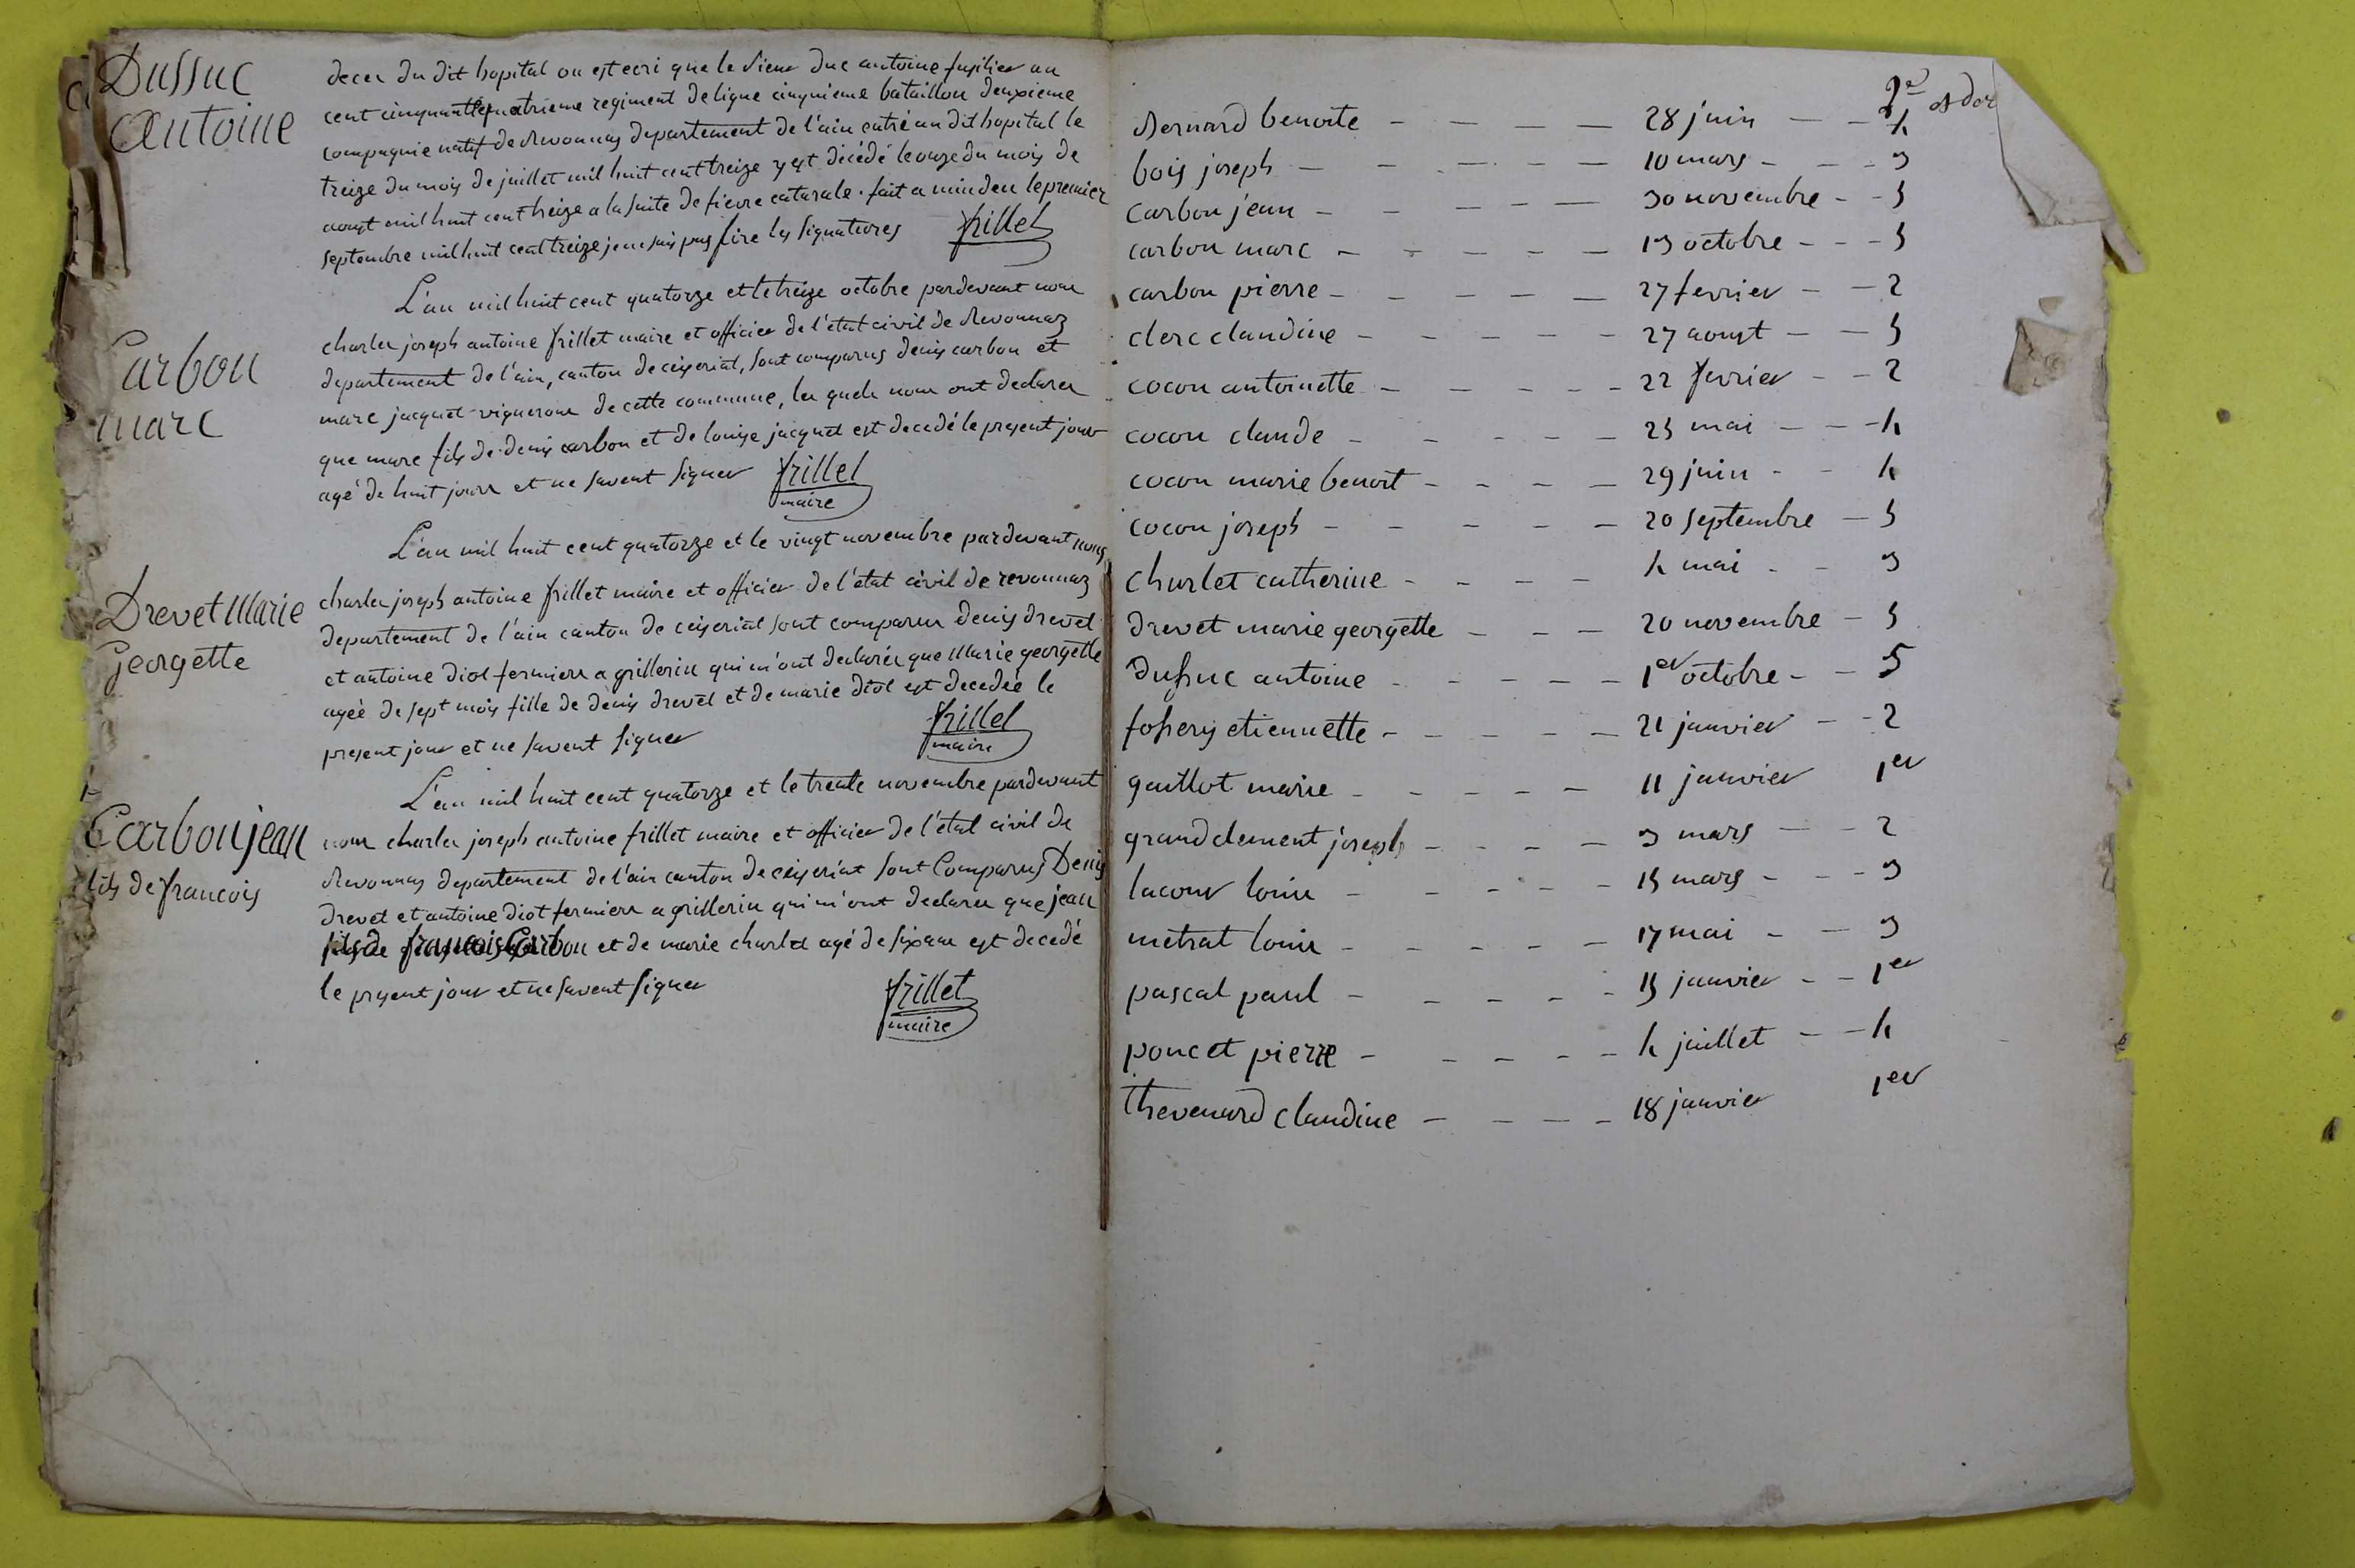 Dussuc
Antoine
deces du dit hopital ou est ecri que le sieur duc antoine fusilier au
cent cinquantequatrieme regiment de ligne cinquieme bataillon deuxieme
compagnie natif de Revonnas departement de l'ain entré au dit hopital le
treize du mois de juillet mil huit cent treize y est décédé le onze du mois de
aoust mil huit cent treize a la suite de fievre catarale. fait a minden le premier
septembre mil huit cent treize je ne sais pas lire les signatures frillet
Carbon
marc
L'an mil huit cent quatorze et le treize octobre pardevant nous
charles joseph antoine frillet maire et officier de l'etat civil de Revonnaz
departement de l'ain, canton de ceyseriat, sont comparus denis carbon et
marc jacquet vignerons de cette commune, les quels nous ont declarer
que marc fils de denis carbon et de louise jacquet est decedé le present jour
agé de huit jours et ne savent signer frillet
maire
Drevet Marie
Georgette
L'an mil huit cent quatorze et le vingt novembre pardevant nous
charles joseph antoine frillet maire et officier de l'état civil de revonnaz
departement de l'ain canton de ceyseriat sont comparus denis drevet
et antoine diot fermiers a grillerin qui m'ont declarés que Marie georgette
ageé de sept mois fille de denis drevet et de marie diot est decedeé le
present jour et ne savent signer frillet
maire
Carbon jean
fils de francois
L'an mil huit cent quatorze et le trente novembre pardevant
nous charles joseph antoine frillet maire et officier de l'état civil de
Revonnas departement de l'ain canton de ceyseriat sont Comparus Denis
drevet et antoine diot fermiers a grillerin qui m'ont declarer que jean
fils de francois Carbon et de marie charlet agé de six ans est decedé
le present jour et ne savent signer frillet
maire
Bernard benoite - - - - 28 juin - - 4
bois joseph - - - - - 10 mars - - - 3
carbon jean - - - - - 30 novembre - - 5
carbon marc - - - - - 13 octobre - - - 5
carbon pierre - - - - - 27 fevrier - - 2
clerc claudine - - - - - 27 aoust - - 5
cocon antoinette - - - - - 22 fevrier - - 2
cocon claude - - - - - 25 mai - - - 4
cocon marie benoit - - - - 29 juin - - 4
cocon joseph - - - - - 20 septembre - 5
charlet catherine - - - - 4 mai - - 3
drevet marie georgette - - - 20 novembre - 5
dussuc antoine - - - - - 1er octobre - - 5
etiennette - - - - - 21 janvier - - 2
gaillot marie - - - - - 11 janvier 1er
grandclement joseph - - - - 3 mars - - 2
lacour louis - - - - - 15 mars - - - 3
metrat louis - - - - - 17 mai - - 3
pascal paul - - - - - 15 janvier - - 1er
poncet pierre - - - - - 4 juillet - - 4
thevenard claudine - - - - 18 janvier 1er